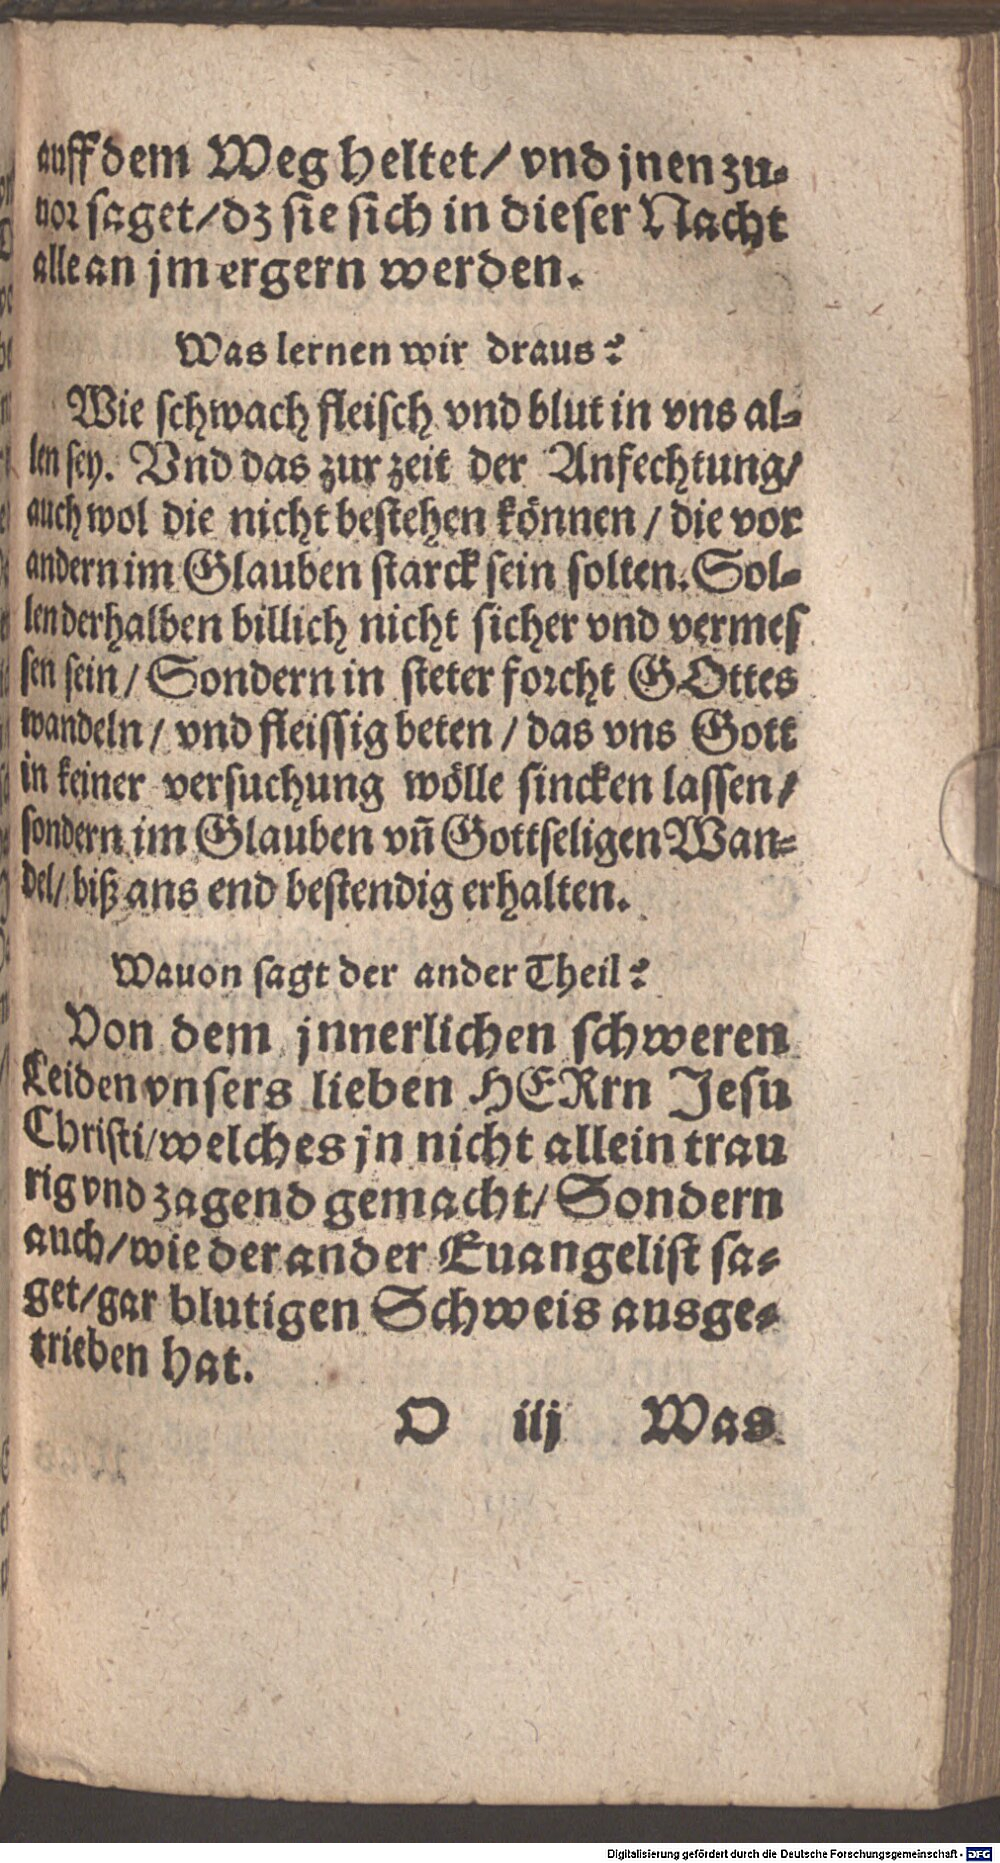 auff dem Weg heltet / vnd jnen zu-
uor saget / dz sie sich in dieser Nacht
alle an jm ergern werden.
Was lernen wir draus?
Wie schwach fleisch vnd blut in vns al-
len sey. Vnd das zur zeit der Anfechtung /
auch wol die nicht bestehen können / die vor
andern im Glauben starck sein solten. Sol-
len derhalben billich nicht sicher vnd vermes
sen sein / Sondern in steter forcht GOttes
wandeln / vnd fleissig beten / das vns Gott
in keiner versuchung wölle sincken lassen /
sondern im Glauben vñ Gottseligen Wan-
del / biß ans end bestendig erhalten.
Wauon sagt der ander Theil?
Von dem jnnerlichen schweren
Leiden vnsers lieben HERrn Jesu
Christi / welches jn nicht allein trau
rig vnd zagend gemacht / Sondern
auch / wie der ander Euangelist sa-
get / gar blutigen Schweis ausge-
trieben hat.
O iij Was
Digitalisierung gefördert durch die Deutsche Forschungsgemeinschaft - DFG